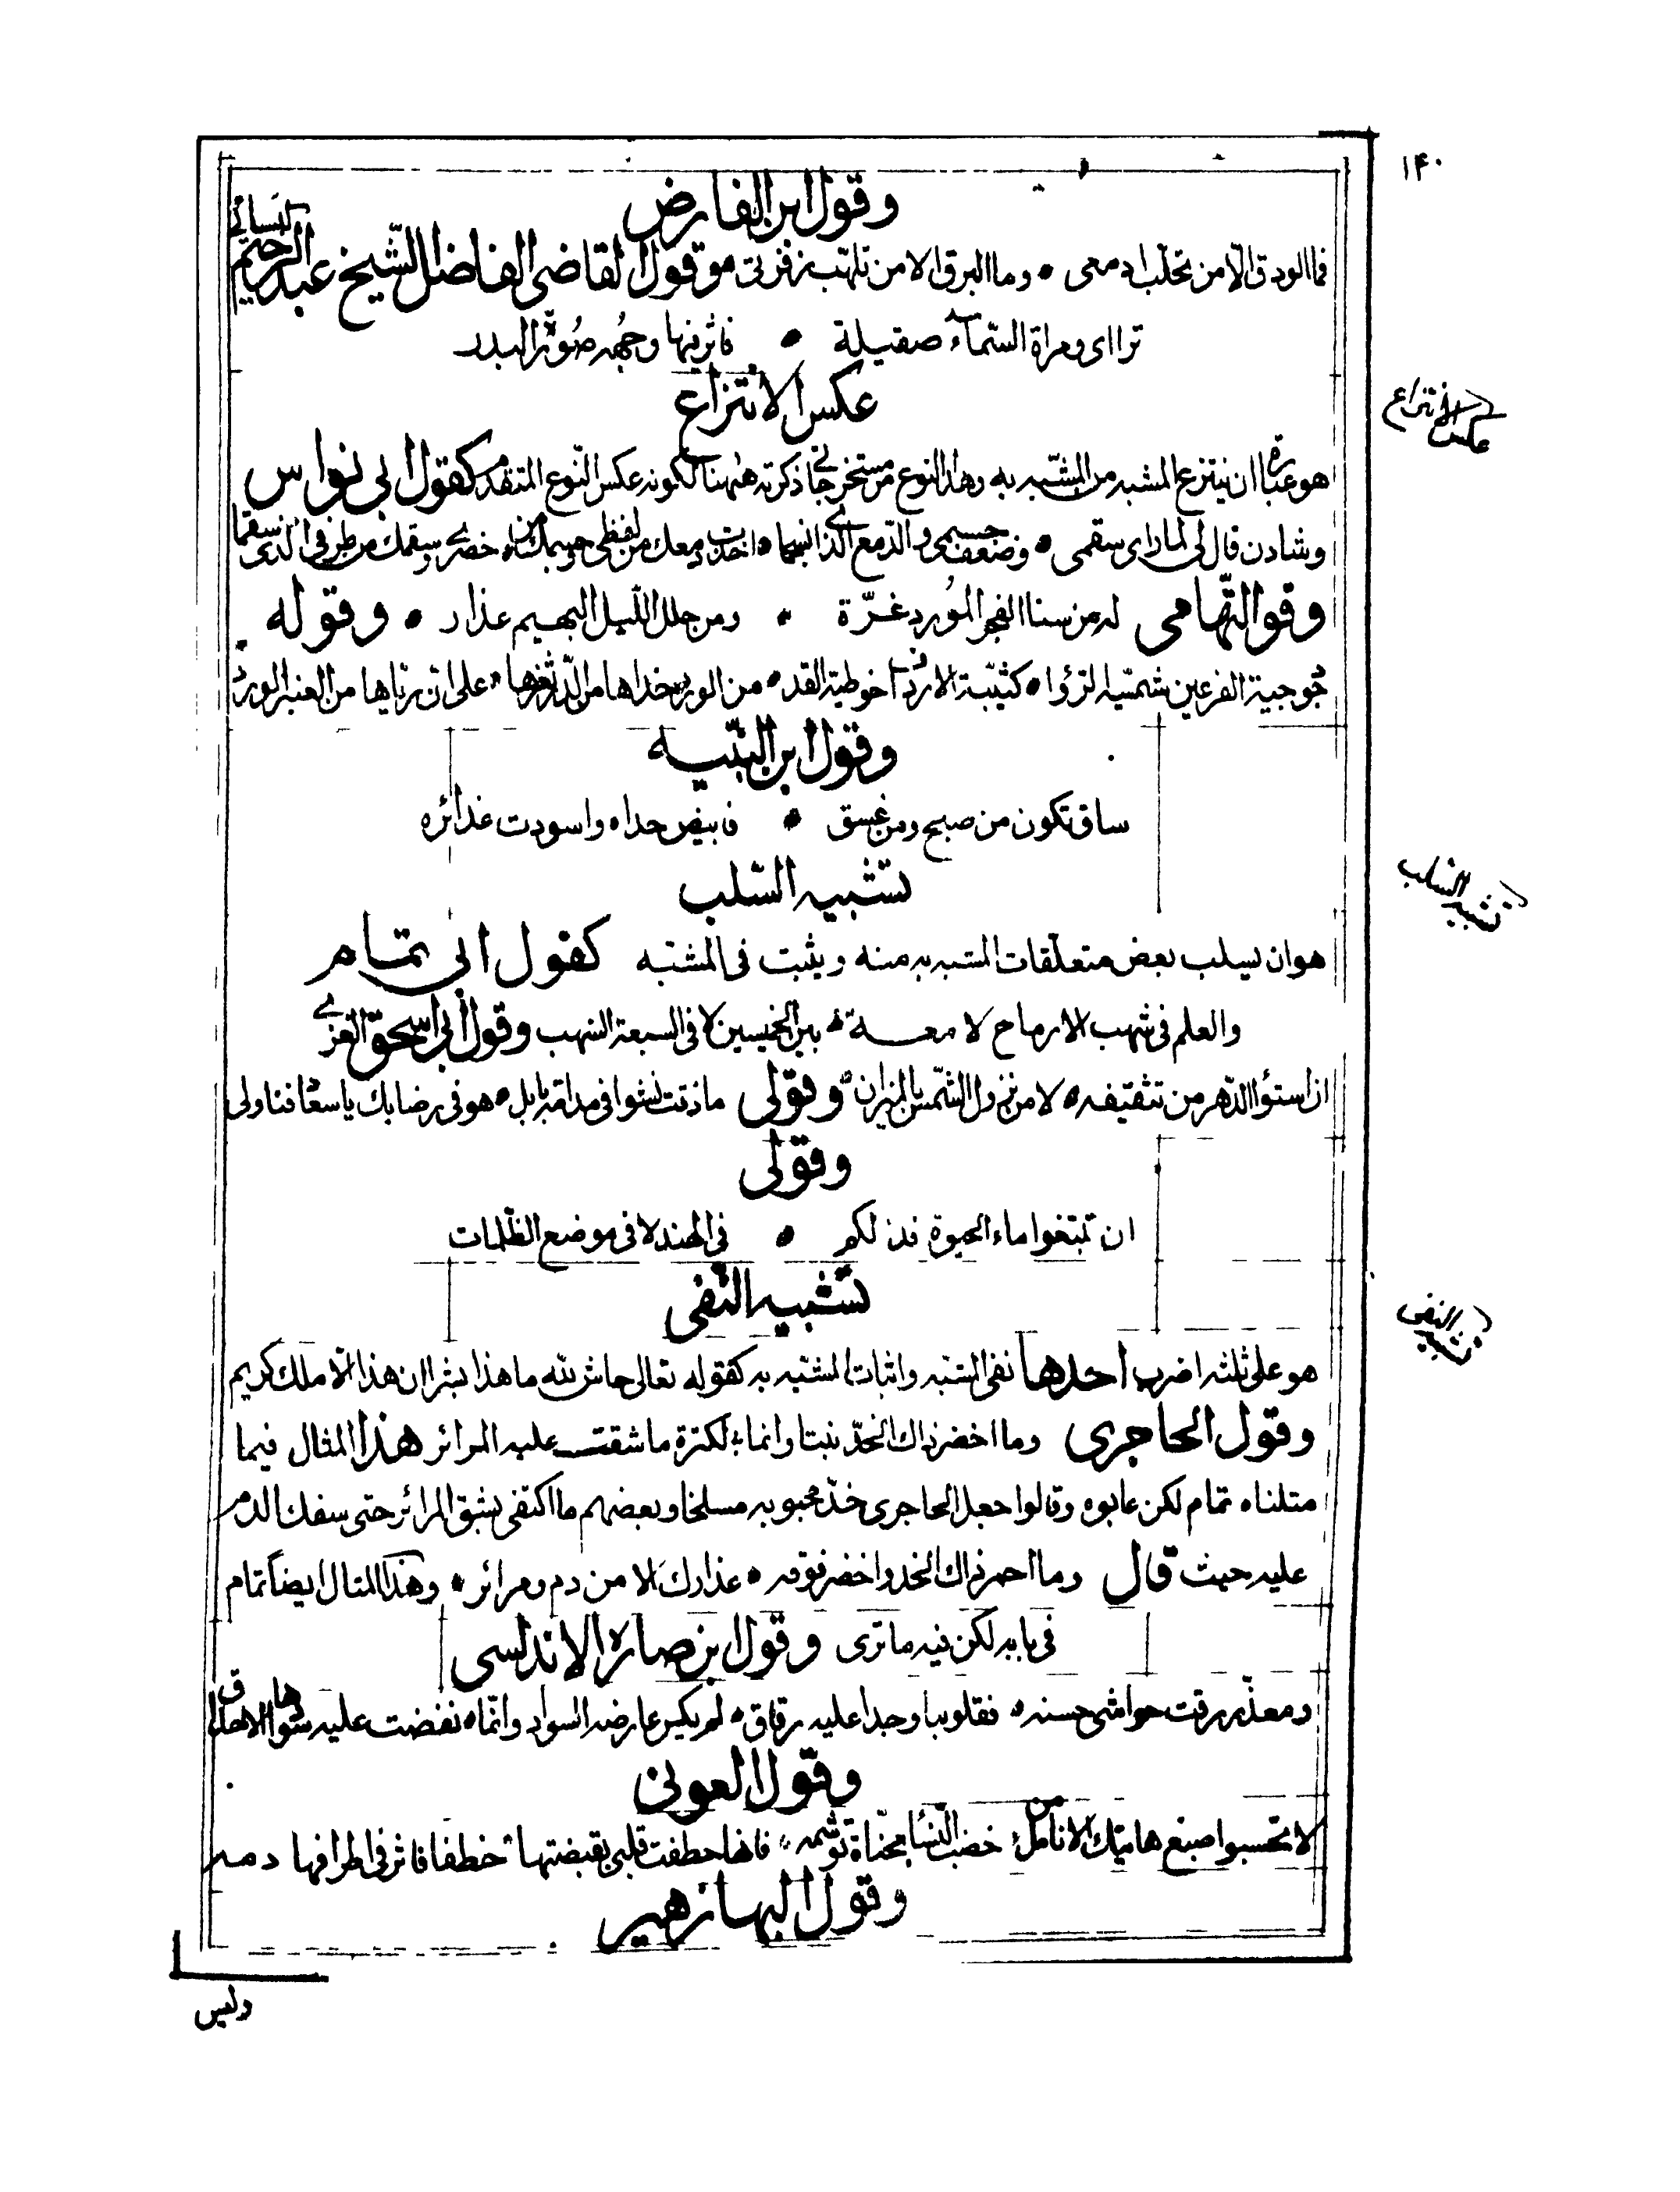 ١٤٠
وقول ابن الفارض
فما الودق الا من تحلب ادمعى ● وما البرق الا من تلهب زفرتى وقول القاضى الفاضل الشيخ عبد الرحيم
تراءى ومراة السماء صقيلة ● فاثر فيها وجهه صورة البدر
عكس الانتزاع
عكس الانتزاع
هو عبارة ان ينتزع المشبه من المشبه به وهذا النوع من مستخرجاتى ذكرته ههنا لكونه عكس النوع المتقدم كقول ابى نواس
وشادن قال لى لما راى سقمى ● وضعف جسمى والدمع الذى انسجما ● اخذت دمعك من لفظى وجسمك من ● خصرى وسقمك من طرفى الذى سقما
وقول التهامى له من سنا الفجر المورد غرة ● ومن حلل الليل البهيم عذار ● وقوله
الفرعين شمسية ● كثيبة الارداف خوطية القد ● من الورد خداها من الدر ثغرها ● على ان رياها من العنبر الورد
وقول ابن النبيه
ساق تكون من صبح ومن غسق ● فابيض خداه واسودت غدائره
تشبيه السلب
تشبيه السلب
هو ان يسلب بعض متعلقات المشبه به منه ويثبت فى المشبه كقول ابى تمام
والعلم فى شهب الارماح لامعة ● بين الخميسين لا فى السبعة الشهب وقول ابى اسحق الغزى
ان استواء الدهر من تثقيفه ● لا من نزول الشمس بالميزان وقولى ما ذقت نشوا فى مدامة بابل ● هو فى رضابك يا سعاد فناولى
وقولى
ان تبتغوا ماء الحيوة فذلكم ● فى الهند لا فى موضع الظلمات
تشبيه النفى
تشبيه النفى
هو على ثلثه اضرب احدها نفى المشبه واثبات المشبه به كقوله تعالى حاش لله ما هذا بشرا ان هذا الا ملك كريم
وقول الحاجرى وما اخضر ذاك الخد نبتا وانما ● لكثرة ما شقت عليه المرائر هذا المثال فيما
مثلناه تمام لكن عابوه وقالوا جعل الحاجرى خد محبوبه مسلخا وبعضهم ما اكتفى بشق المرائر حتى سفك الدم
عليه حيث قال وما احمر ذاك الخد واخضر فوقه ● عذارك الا من دم ومرائر ● وهذا المثال ايضا تمام
فى بابه لكن فيه ما ترى وقول ابن صارة الاندلسى
ومعذر رقت حواشى حسنه ● فقلوبنا وجدا عليه رقاق ● لم يكس عارضه السواد وانما ● نفضت عليه سوادها الاحداق
وقول العونى
لا تحسبوا صبغ هاتيك الانامل من خضب فانها خطفت قلبى بقبضتها ● خطفا فاثر فى اطرافها دمه
وقول البهازهير
وليس